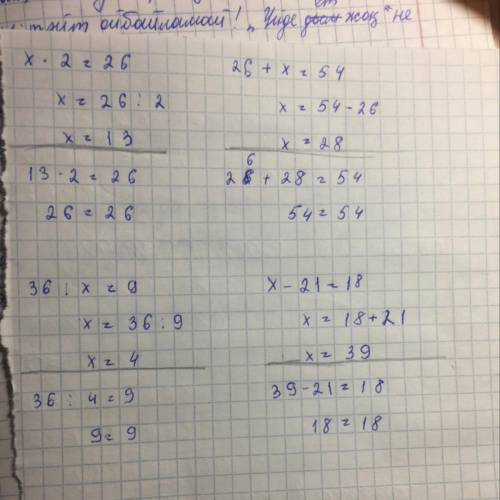 ет
айбайламай! „Үйде жоқ" не
x · 2 = 26
x = 26 : 2
x = 13
13 · 2 = 26
26 = 26
26 + x = 54
x = 54 - 26
x = 28
26 + 28 = 54
54 = 54
36 : x = 9
x = 36 : 9
x = 4
36 : 4 = 9
9 = 9
x - 21 = 18
x = 18 + 21
x = 39
39 - 21 = 18
18 = 18